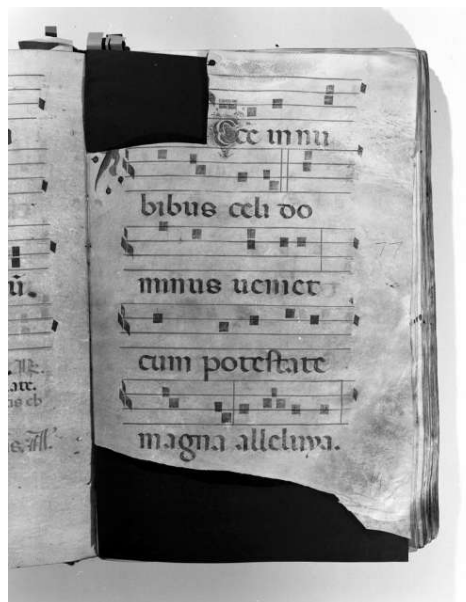 Ecce in nu
bibus celi do
minus ueniet
cum potestate
magna alleluya.